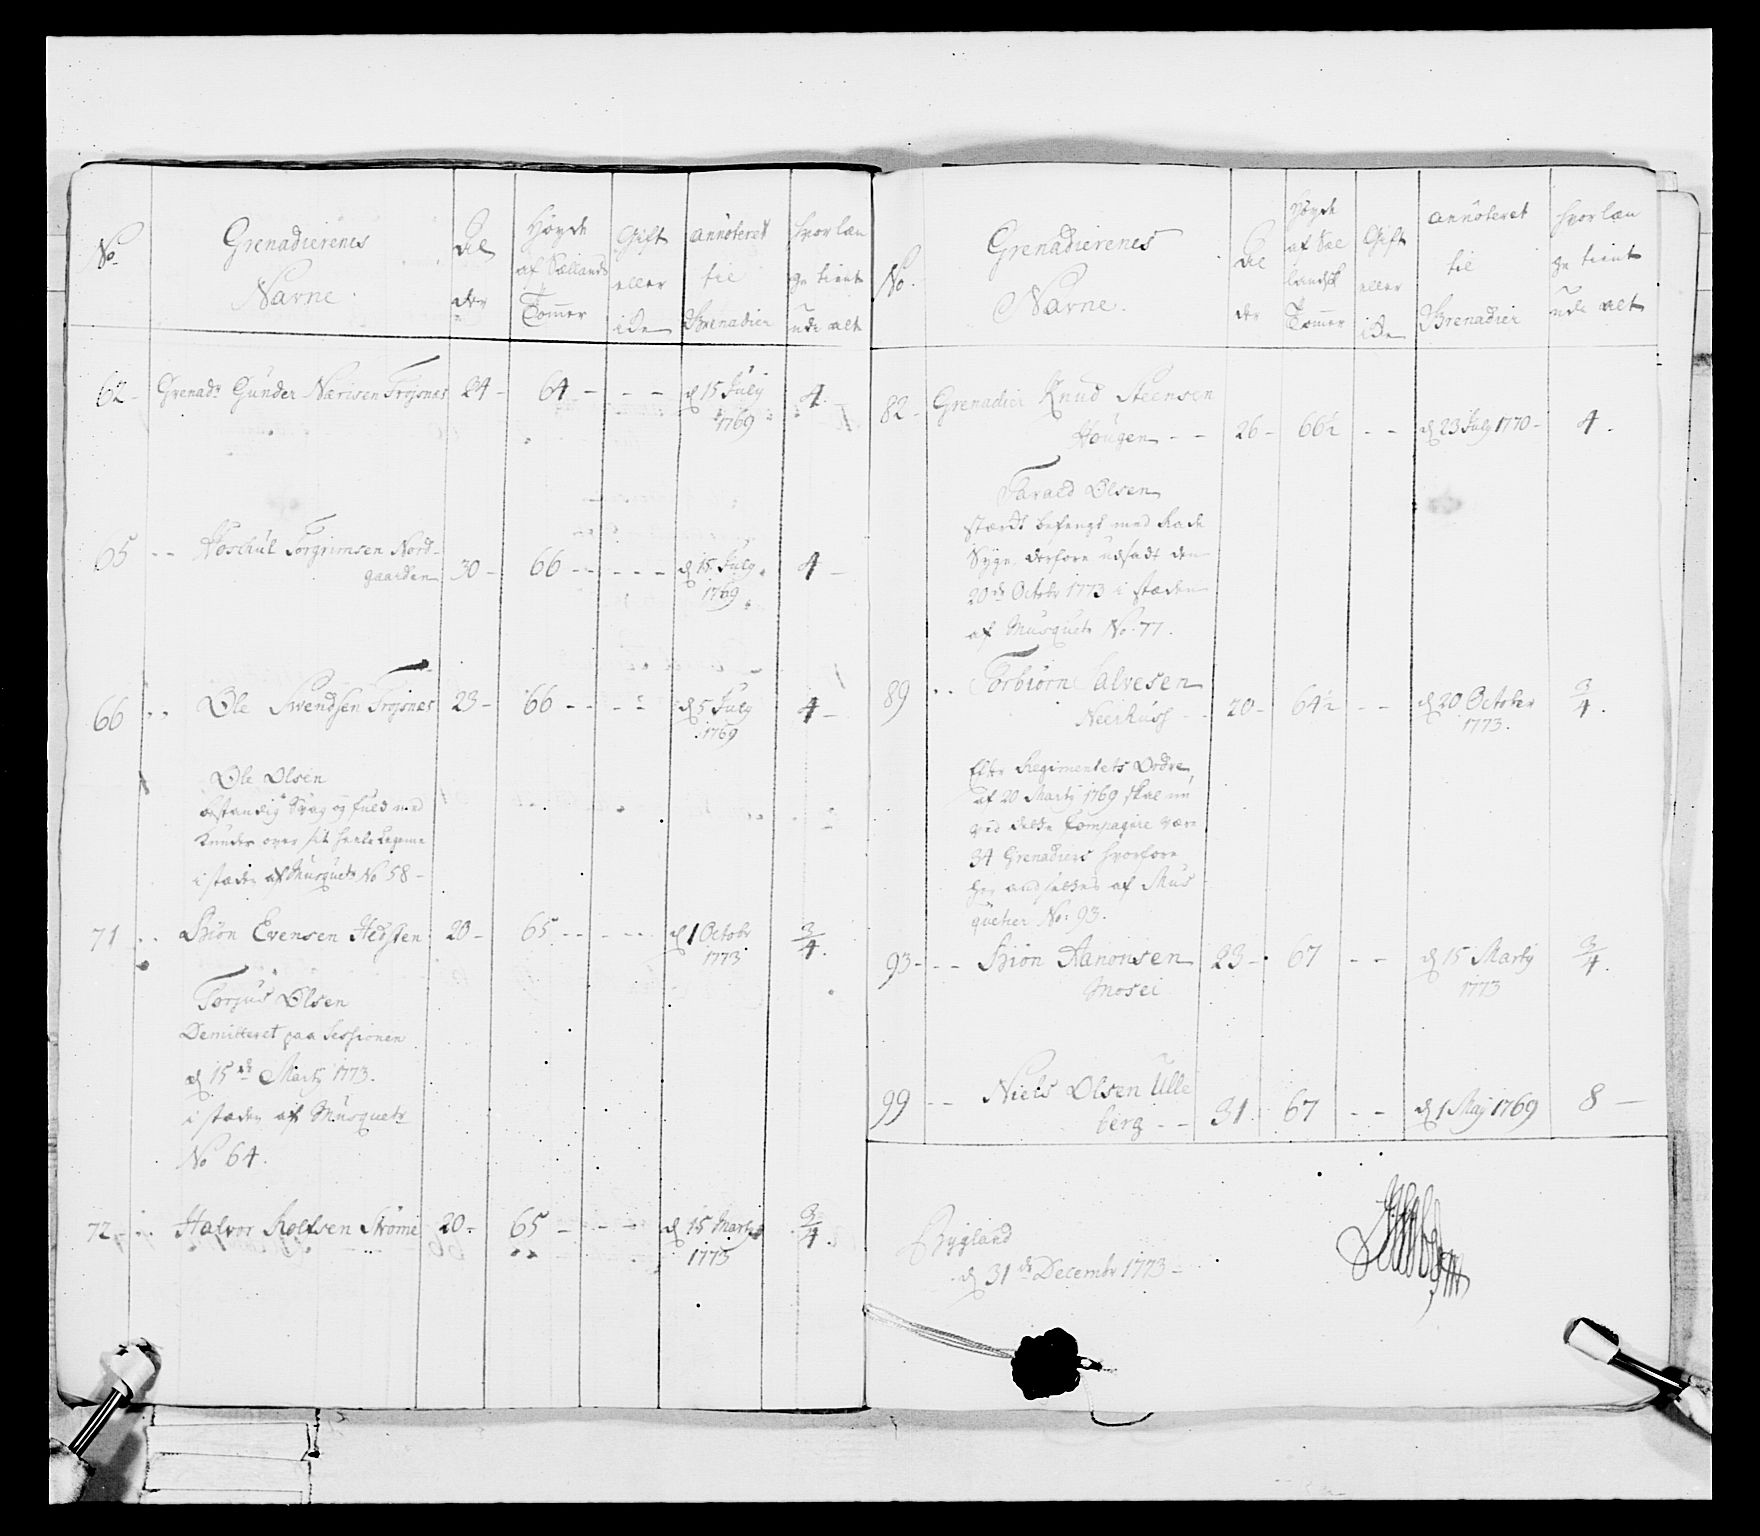 No
Grenadierenes
Navne.
Al
der
Høyde
af Sællands
Tommer
Gift
eller
icke
annoteret
til
Grenadier
hvor læn
ge tient
udi alt
62 - Grenadr Gunder Nærisen Frøjsnæs 24 - 64 - - - d 15 July 4.
1769
65 - - Hoschul Torgrimsen Nord-
gaarden 30 - 66 - - - - - d 15 July 4 -
1769
66 - - Ole Svendsen Frøjsnæs 23 - 66 - - - - d 5 July 4 -
1769
Ole Olsen
bestandig Svag og fuld med
over sit heele Legeme
i stæden af Musquetr No 58 -
71 - - Biøn Evensen Hedsten 20 - 65 - - - - d 1 Octobr 3/4.
1773
Torjus Olsen
Demitteret paa Sessionen
d 15de Martj 1773.
i stæden af Musquetr
No 64.
72 - - Halvor Rolfsen Strømme 20 - 65 - - - d 15 Martj 3/4.
1773
No.
Grenadierenes
Navne.
Al
der
Høyde
af Sæl
landsk
Tommer
Gift
eller
icke
annoteret
til
Grenadier
hvor læn
ge tient
udi alt
82 - Grenadier Knud Steensen
Hougen - - 26 - 66½ - - d 23 July 1770 - 4.
Tarald Olsen
stærkt befengt med Rade
Syge derfore udsadt den
20de Octobr 1773 i stæden
af Musquetr No: 77.
89 - - Torbiørn Salvesen
20 - 64½ - - d 20 October 3/4.
1773.
Efter Regimentets Ordre
af 20 Martj 1769 skal nu
ved dette Compagnie være
34 Grenadiers hvorfore
her andsættes af Mus
quetier No: 93.
93 - - - Biøn Aanonsen 23 - 67 - - d 15 Martj 3/4.
Mosei 1773
99 - - Niels Olsen Ulle
berg - - 31. 67 - - d 1 Maj 1769 8 -
Bygland
d 31de Decembr 1773 -